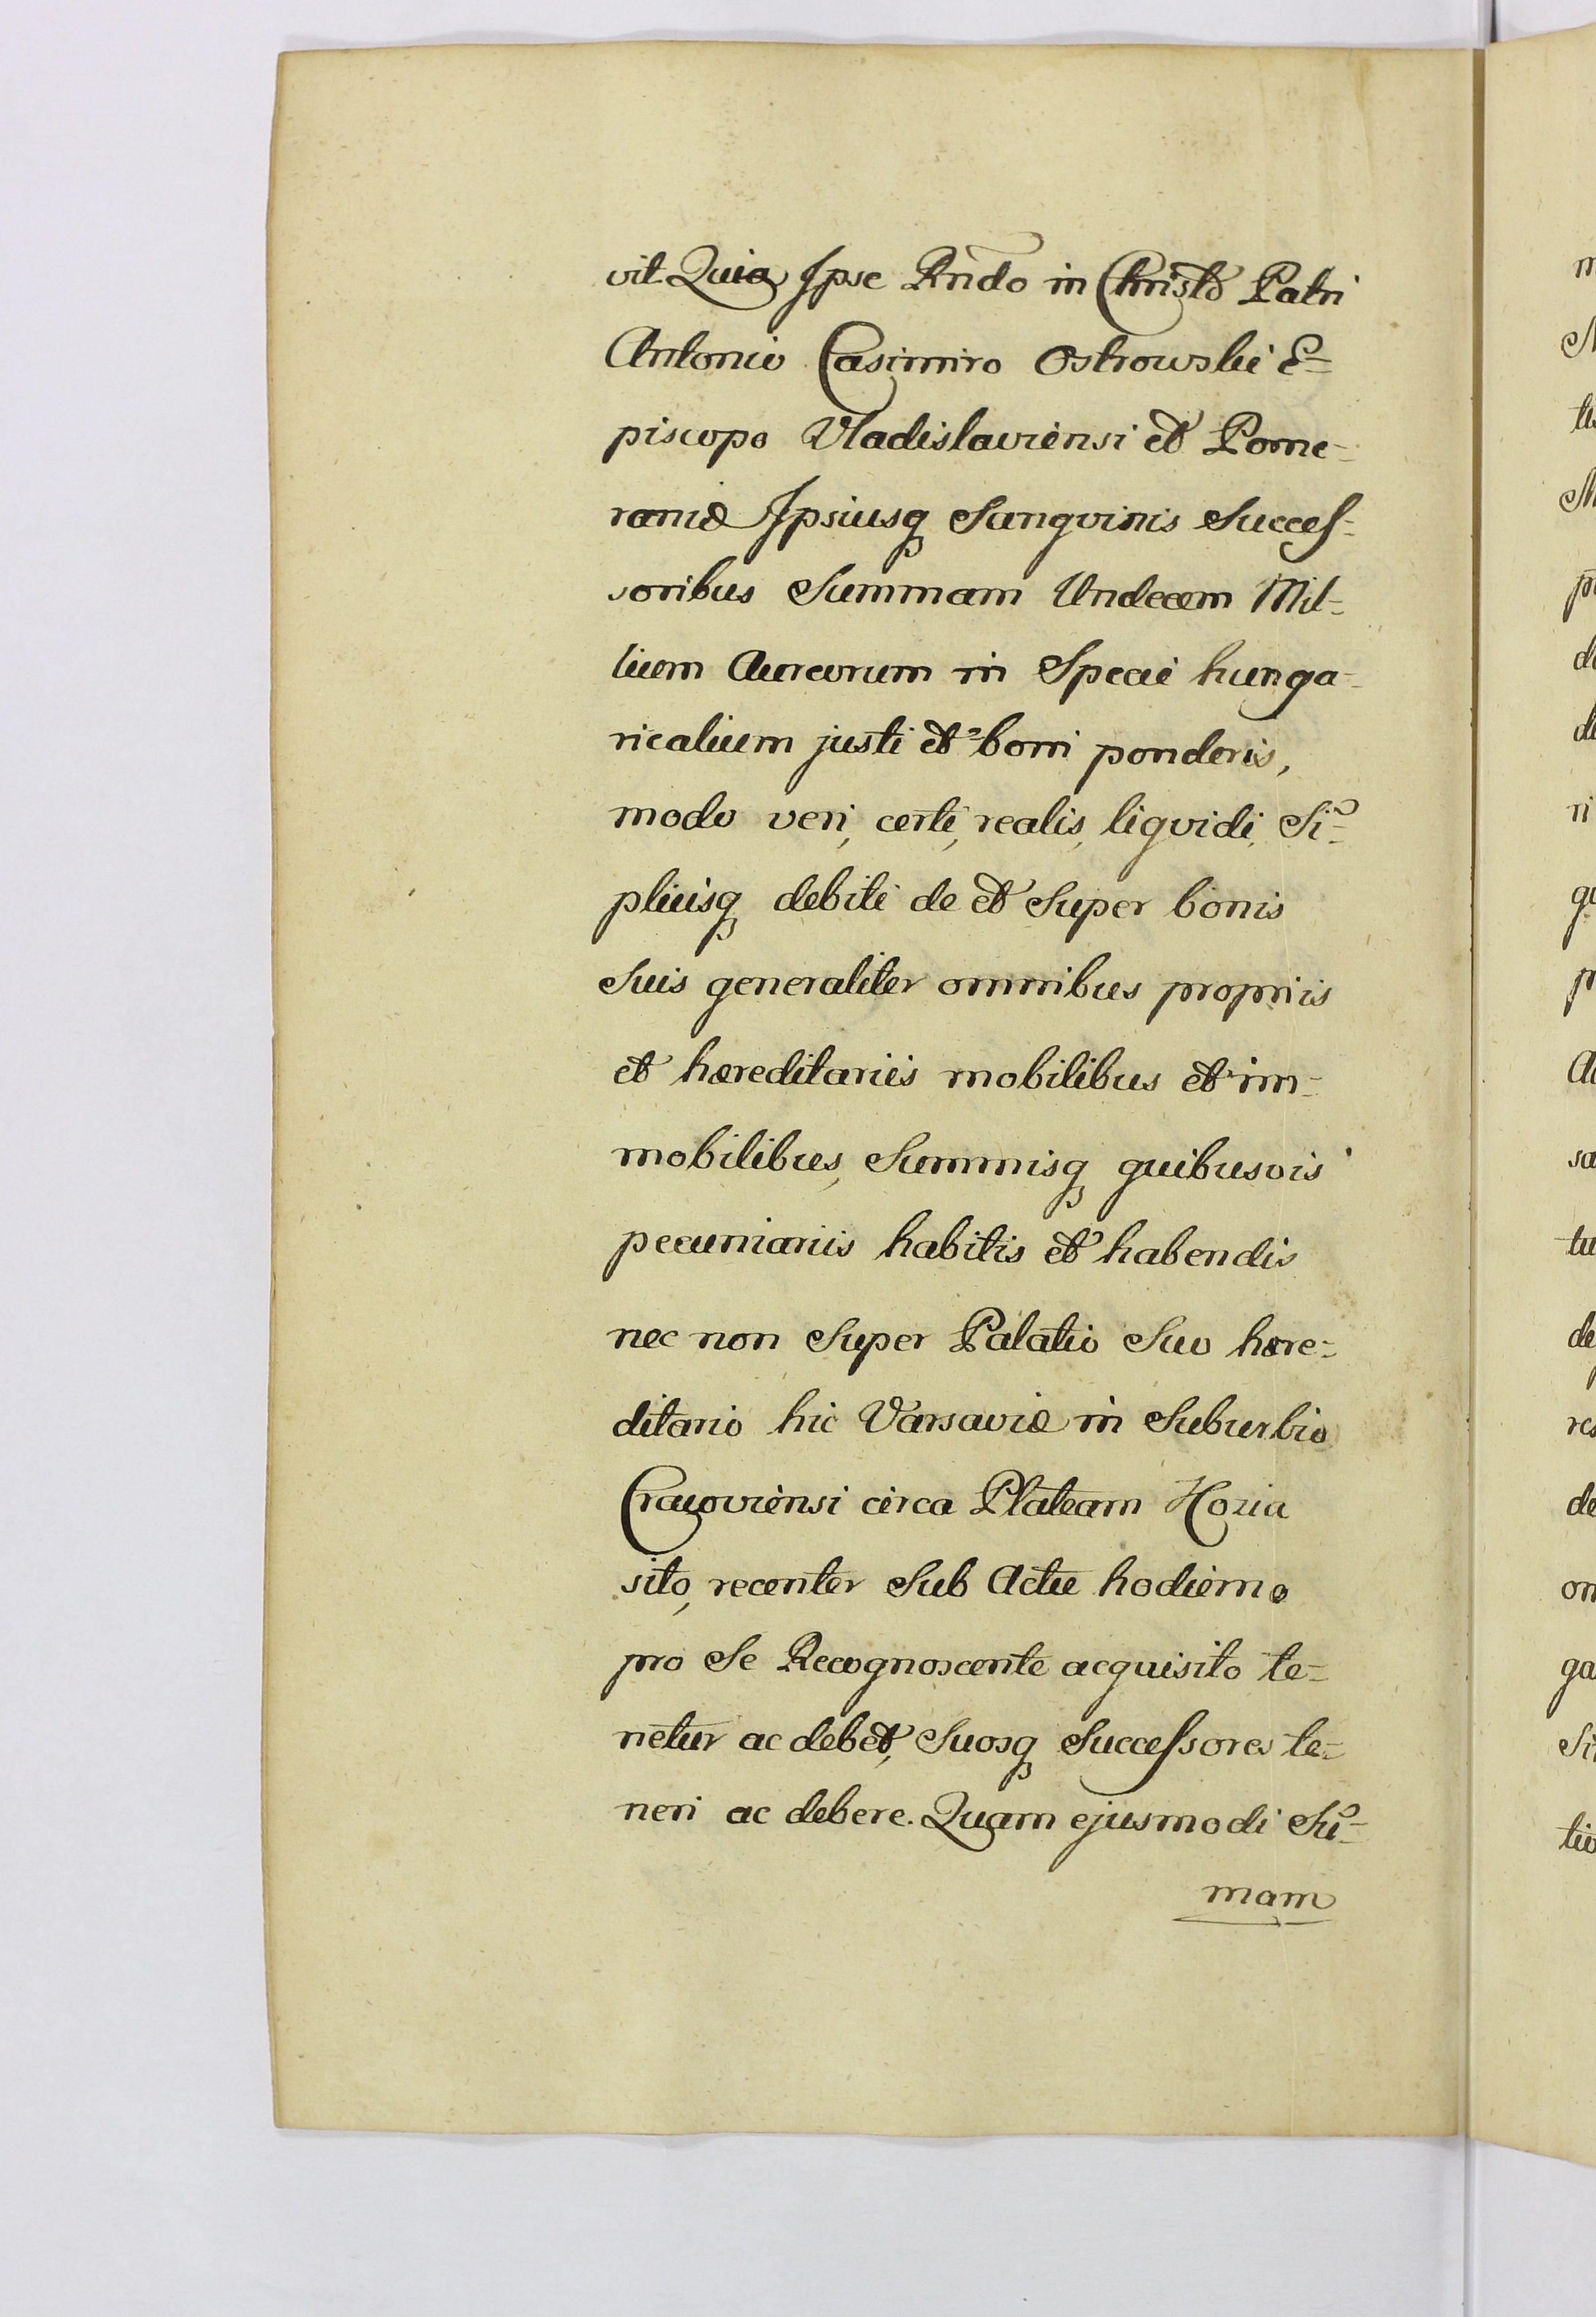 vit Quia Ipse Rndo in Christo Patri
Antonio Casimiro Ostrowski E=
piscopo Vladislaviensi et Pome-
raniæ Ipsiusq Sangvinis Succes-
soribus Summam Undecem Mil-
lium Aureorum in Specie hunga-
ricalium justi et boni ponderis,
modo veri, certi, realis, liqvidi, Si=
pliisq debiti de et Super bonis
Suis generaliter omnibus propriis
et hæreditariis mobilibus et im-
mobilibus, Summisq quibusvis
pecuniariis habitis et habendis
nec non Super Palatio Suo hære=
ditario hic Varsaviæ in Suburbio
Cracoviensi circa Plateam Kozia
sito, recenter Sub Actu hodierno
pro Se Recognoscente acquisito te=
netur ac debet, Suosq Successores te=
neri ac debere. Quam ejusmodi Su=
mam